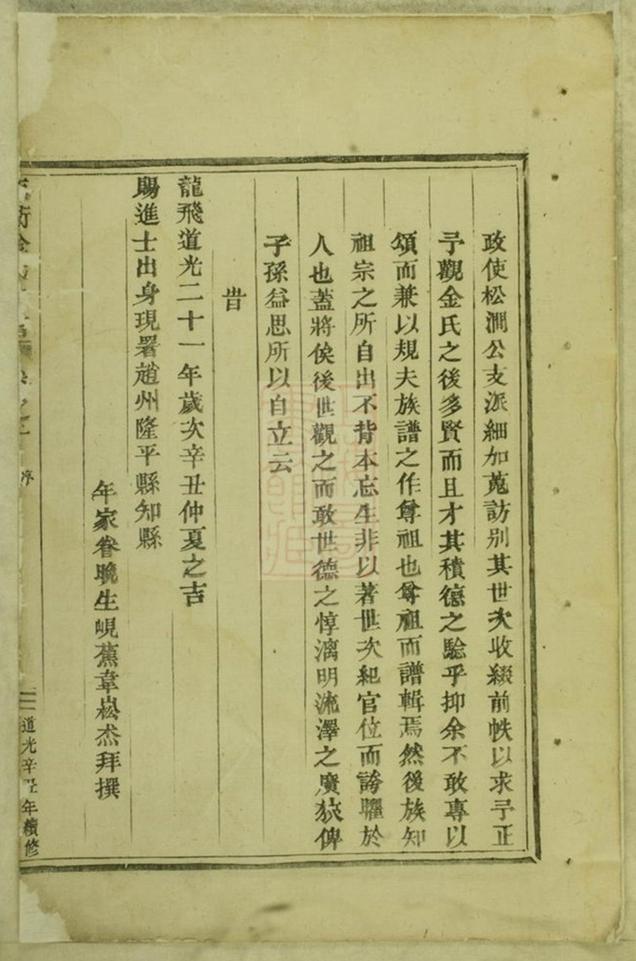 政使松澗公支派細加蒐訪別其世次收綴前帙以求予正
予觀金氏之後多賢而且才其積德之驗乎抑余不敢專以
頌而兼以規夫族譜之作尊祖也尊祖而譜輯焉然後族知
祖宗之所自出不背本忘生非以著世次紀官位而誇耀於
人也蓋將俟後世觀之而敢世德之惇漓明流澤之廣狹俾
子孫益思所以自立云
旹
龍飛道光二十一年歲次辛丑仲夏之吉
賜進士出身現署趙州隆平縣知縣
年家眷晚生峴蕉韋崧杰拜撰
序
二 道光辛丑年續修